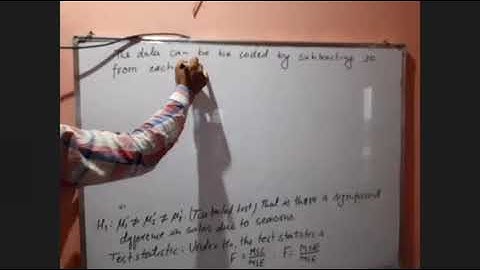 The data can be be coded by subtracting 30
from each
H₁: μ₁ ≠ μ₂ ≠ μ₃ (Two tailed test) That is there is significant
difference in sales due to seasons
Test statistic: Under H₀, the test statistic is
F = MSC/MSE ; F = MSR/MSE